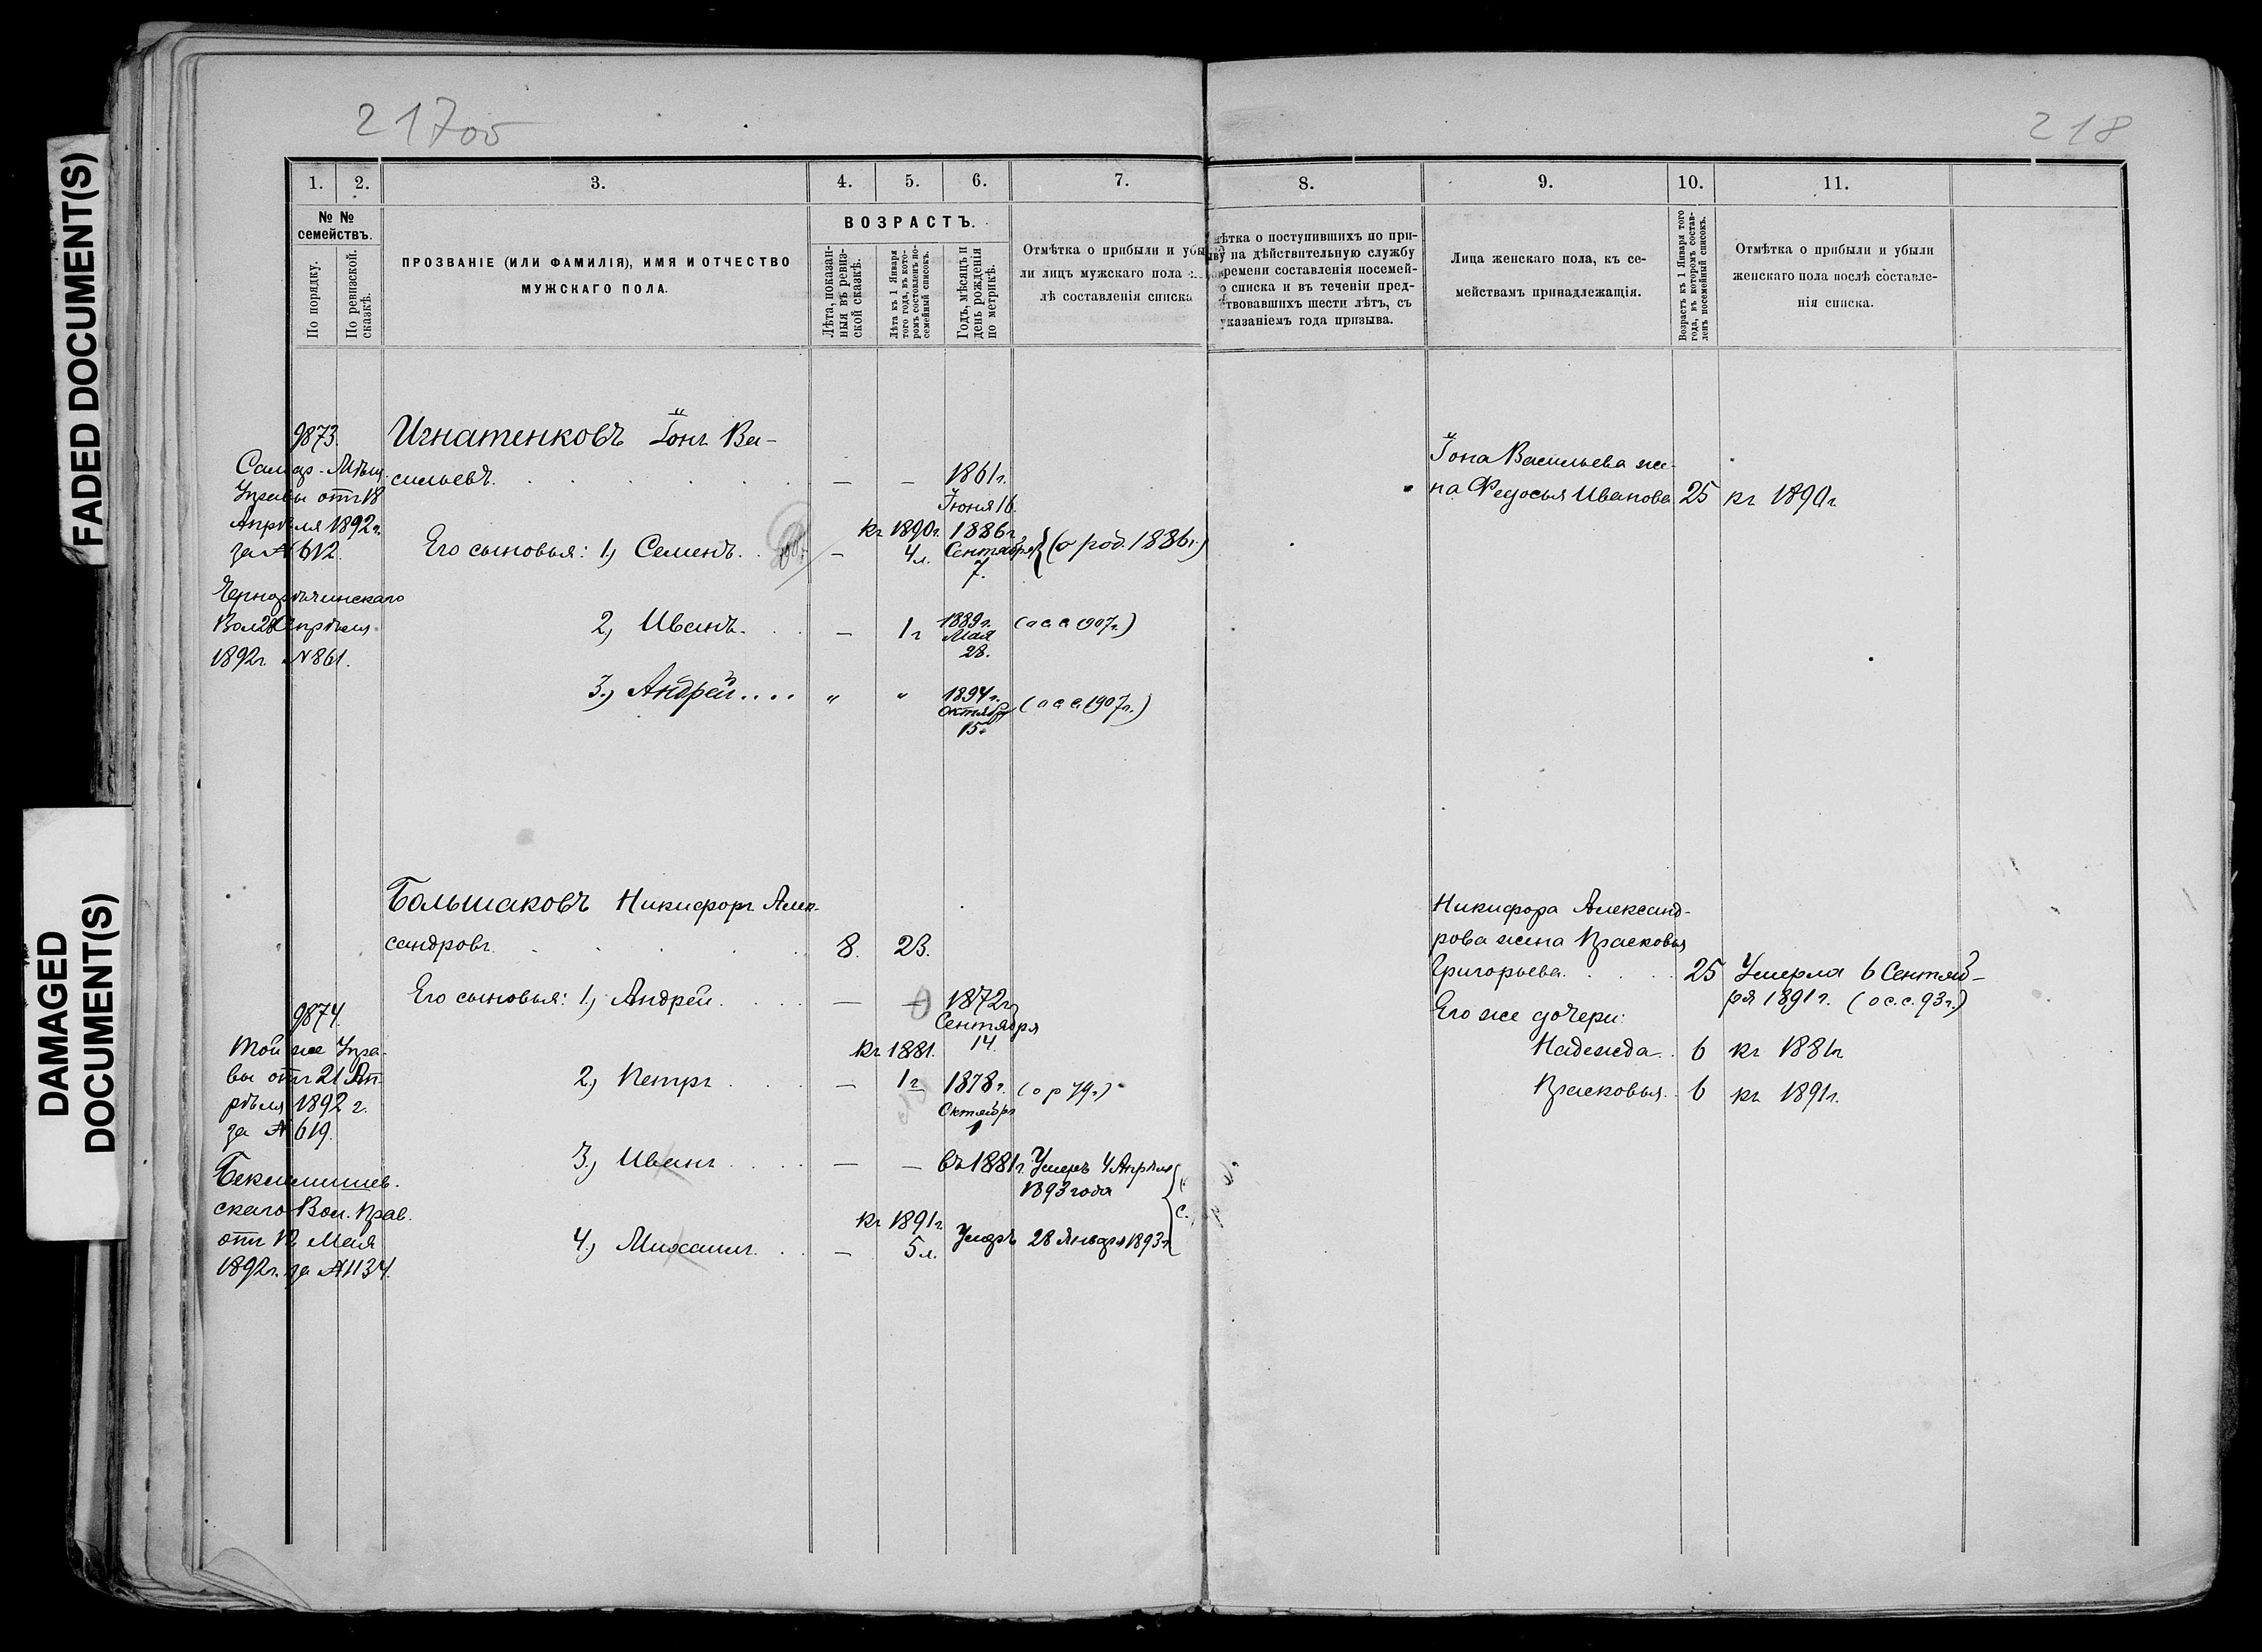 FADED DOCUMENT(S)
DAMAGED
DOCUMENT(S)
217 об
218
1.
2.
3.
4.
5.
6.
7.
8.
9.
10.
11.
№ №
семействъ.
По порядку.
По ревизской
сказкѣ.
ПРОЗВАНІЕ (ИЛИ ФАМИЛІЯ), ИМЯ И ОТЧЕСТВО
МУЖСКАГО ПОЛА.
ВОЗРАСТЪ.
Лѣта, показан-
ныя въ ревиз-
ской сказкѣ.
Лѣта къ 1 Января
того года, въ кото-
ромъ составленъ по-
семейный списокъ.
Годъ, мѣсяцъ и
день рожденія
по метрикѣ.
Отмѣтка о прибыли и убы
ли лицъ мужскаго пола
лѣ составленія списка
ѣтка о поступившихъ по при-
ыву на дѣйствительную службу
времени составленія посемей-
о списка и въ теченіи пред-
ствовавшихъ шести лѣтъ, съ
указаніемъ года призыва.
Лица женскаго пола, къ се-
мействамъ принадлежащія.
Возрастъ къ 1 Января того
года, въ которомъ состав-
ленъ посемейный списокъ.
Отмѣтка о прибыли и убыли
женскаго пола послѣ составле-
нія списка.
9873.
Самар. Мѣщ.
Управы отъ 18
Апрѣля 1892 г.
за № 612.
Чернорѣченскаго
Вол 28 Апрѣля
1892 г. № 861.
Игнатенковъ Іонъ Ва-
сильевъ. — — 1861 г.
Іюня 16.
Его сыновья: 1.) Семенъ. — къ 1890 г. 4 л. 1886 г. Сентября 7. (о род. 1886 г.)
2.) Иванъ. — 1 г 1889 г. Мая 28. (о с с 1907 г.)
3.) Андрей.... „ „ 1894 г. октября 15. (о с с 1907 г.)
Іона Васильева же-
на Федосья Иванова 25 къ 1890 г.
Большаковъ Никифоръ Алек-
сандровъ. 8. 23.
9874.
Той же Упра-
вы отъ 21 Ап-
рѣля 1892 г.
за № 619.
Бекмишев-
скаго Вол. Прав.
отъ 12 Мая
1892 г. за № 1134.
Его сыновья: 1.) Андрей. — — 1872 г. Сентября 14.
2.) Петръ — къ 1881. 1 г 1878 г. Октября 1 (о р 79 г.)
3.) Иванъ — — въ 1881 г. Умеръ 4 Апрѣля
1893 года
4.) Михаилъ. — къ 1891 г. 5 л. Умеръ 28 Января 1893 г.
с.
Никифора Александ-
рова жена Прасковья
Григорьева. 25 Умерла 6 Сентяб-
ря 1891 г. (о с. с. 93 г.)
Его же дочери:
Надежда. 6 къ 1881 г.
Прасковья. 6 къ 1891 г.